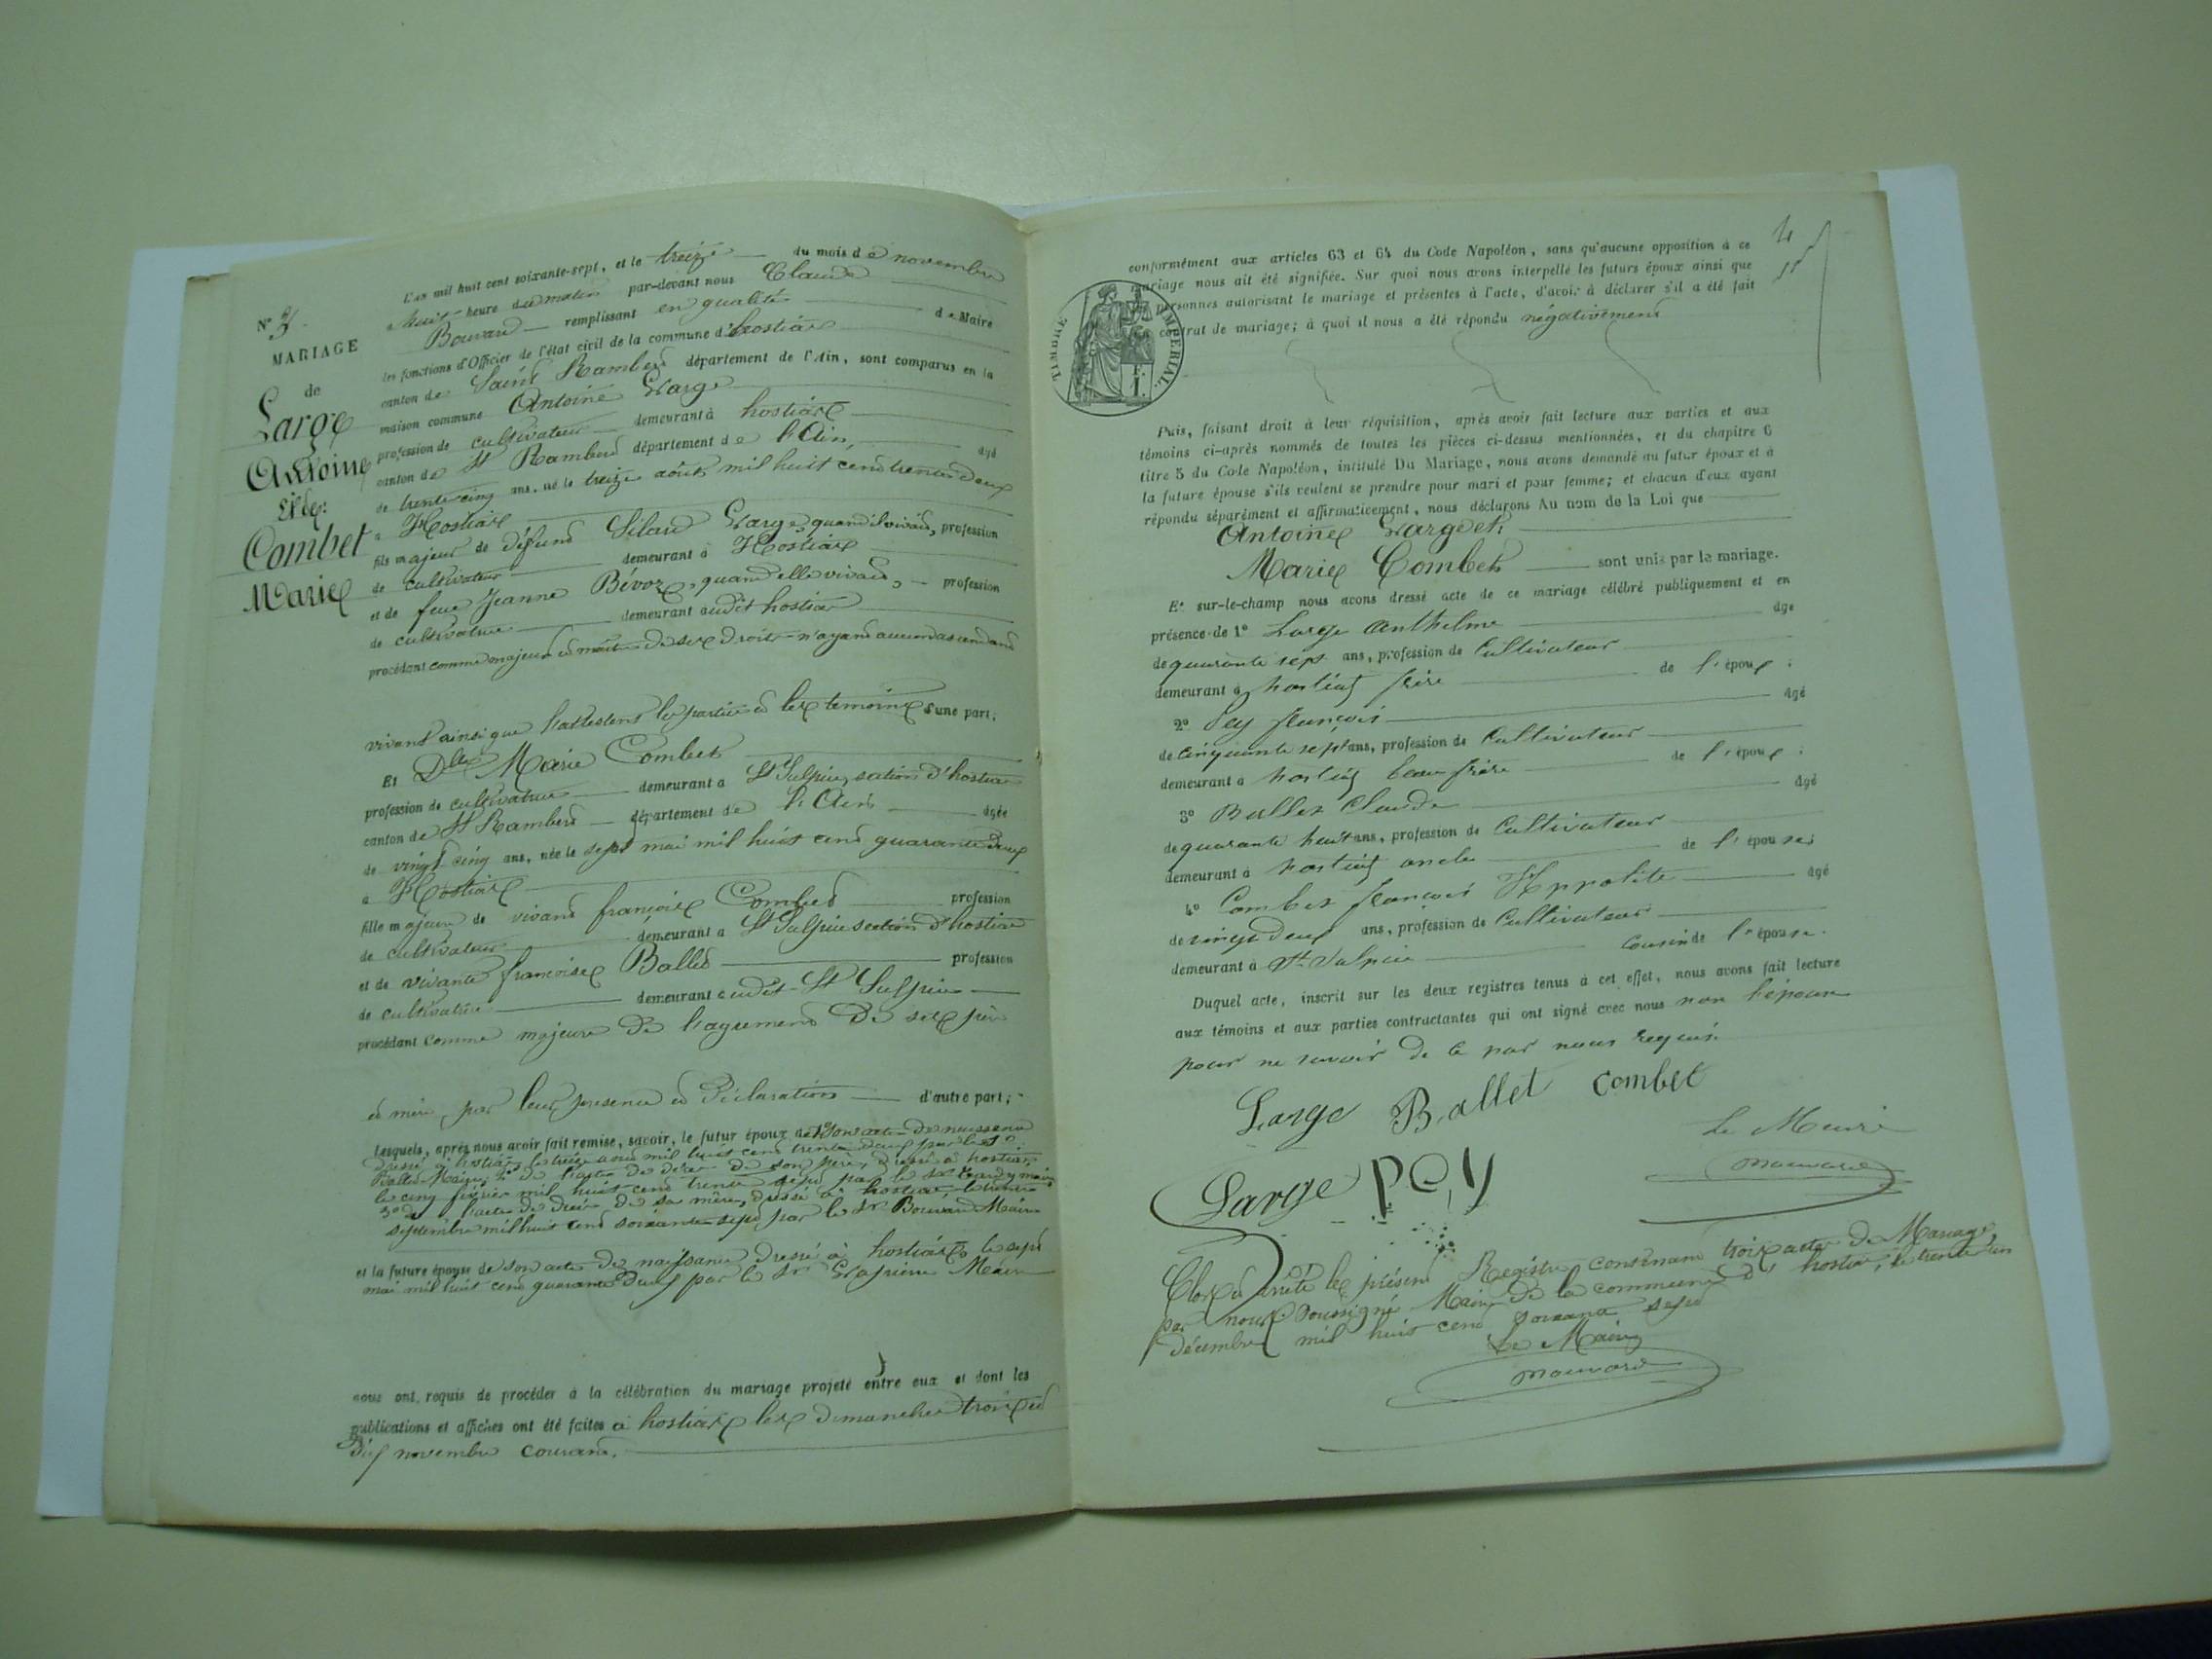 L'an mil huit cent soixante-sept, et le treize du mois de novembre
à huit heure du matin par-devant nous Claude
Bouvard remplissant en qualité de Maire
les fonctions d'Officier de l'état civil de la commune d'hostiaz
canton de Saint Rambert département de l'Ain, sont comparus en la
maison commune Antoine Large
profession de cultivateur demeurant à hostiaz
canton de St Rambert département de l'Ain, âgé
de trente cinq ans, né le treize août mil huit cent trente deux
à Hostiaz
fils majeur de défunt Large, quand il vivait, profession
de cultivateur demeurant à Hostiaz
et de feue Jeanne Bévoz, quand elle vivait, profession
de cultivatrice demeurant audit hostiaz
procédant comme majeur et maître de ses droits n'ayant aucun ascendant
vivant ainsi que l'attestent les parties et les temoins d'une part;
Et Dlle Marie Combet
profession de cultivatrice demeurant à St Sulpice, section d'hostiaz
canton de St Rambert département de l'Ain âgée
de vingt-cinq ans, née le sept mai mil huit cent quarante deux
à Hostiaz
fille majeure de vivant françois Combet profession
de cultivateur demeurant à St Sulpice section d'hostiaz
et de vivante françoise Ballet profession
de cultivatrice demeurant audit St Sulpice
procédant comme majeure de l'agrement de ses père
et mère, par leur presence et déclaration d'autre part;
Lesquels, après nous avoir fait remise, savoir, le futur époux de son acte de naissance
dressé à hostiaz le treize août mil huit cent trente deux par le Sr
Ballet Maire, 2° de l'acte de décès de son père, dressé à hostiaz
le cinq février mil huit cent trente sept par le Sr maire
3° de l'acte de décès de sa mère, dressé à hostiaz le
septembre mil huit cent soixante sept par le Sr Bouvard Maire
et la future épouse de son acte de naissance dressé à hostiaz le sept
mai mil huit cent quarante deux par le Sr Maire
nous ont requis de procéder à la célébration du mariage projeté entre eux et dont les
publications et affiches ont été faites à hostiaz les dimanches trois et
dix novembre courant.
N° 3.
MARIAGE
de
Large
Antoine
Et de
Combet
Marie
4
conformément aux articles 63 et 64 du Code Napoléon, sans qu'aucune opposition à ce
mariage nous ait été signifiée. Sur quoi nous avons interpellé les futurs époux ainsi que
personnes autorisant le mariage et présentes à l'acte, d'avoir à déclarer s'il a été fait
contrat de mariage; à quoi il nous a été répondu négativement
TIMBRE IMPERIAL.
Puis, faisant droit à leur réquisition, après avoir fait lecture aux parties et aux
témoins ci-après nommés de toutes les pièces ci-dessus mentionnées, et du chapitre 6
titre 5 du Code Napoléon, intitulé Du Mariage, nous avons demandé au futur époux et à
la future épouse s'ils veulent se prendre pour mari et pour femme; et chacun d'eux ayant
répondu séparément et affirmativement, nous déclarons Au nom de la Loi que
Antoine Large et
Marie Combet sont unis par le mariage.
Et sur-le-champ nous avons dressé acte de ce mariage célébré publiquement et en
présence de 1° Large Anthelme âgé
de quarante sept ans, profession de Cultivateur
demeurant à hostiaz frère de l'époux;
2° Pey françois âgé
de Cinquante sept ans, profession de Cultivateur
demeurant à hostiaz beau frère de l'époux;
3° Ballet Claude âgé
de quarante huit ans, profession de Cultivateur
demeurant à hostiaz oncle de l'épouse;
4° Combet françois Hyppolite âgé
de vingt deux ans, profession de Cultivateur
demeurant à St. Sulpice Cousin de l'épouse.
Duquel acte, inscrit sur les deux registres tenus à cet effet, nous avons fait lecture
aux témoins et aux parties contractantes qui ont signé avec nous non l'épouse
pour ne savoir de ce par nous requis.
Large Ballet Combet
Le Maire
Bouvard
Large PEY
Clos et arrêté le présent Registre contenant trois actes de Mariage,
par nous soussigné Maire de la commune d'hostiaz, le trente un
décembre mil huit cent soixante sept
Le Maire
Bouvard